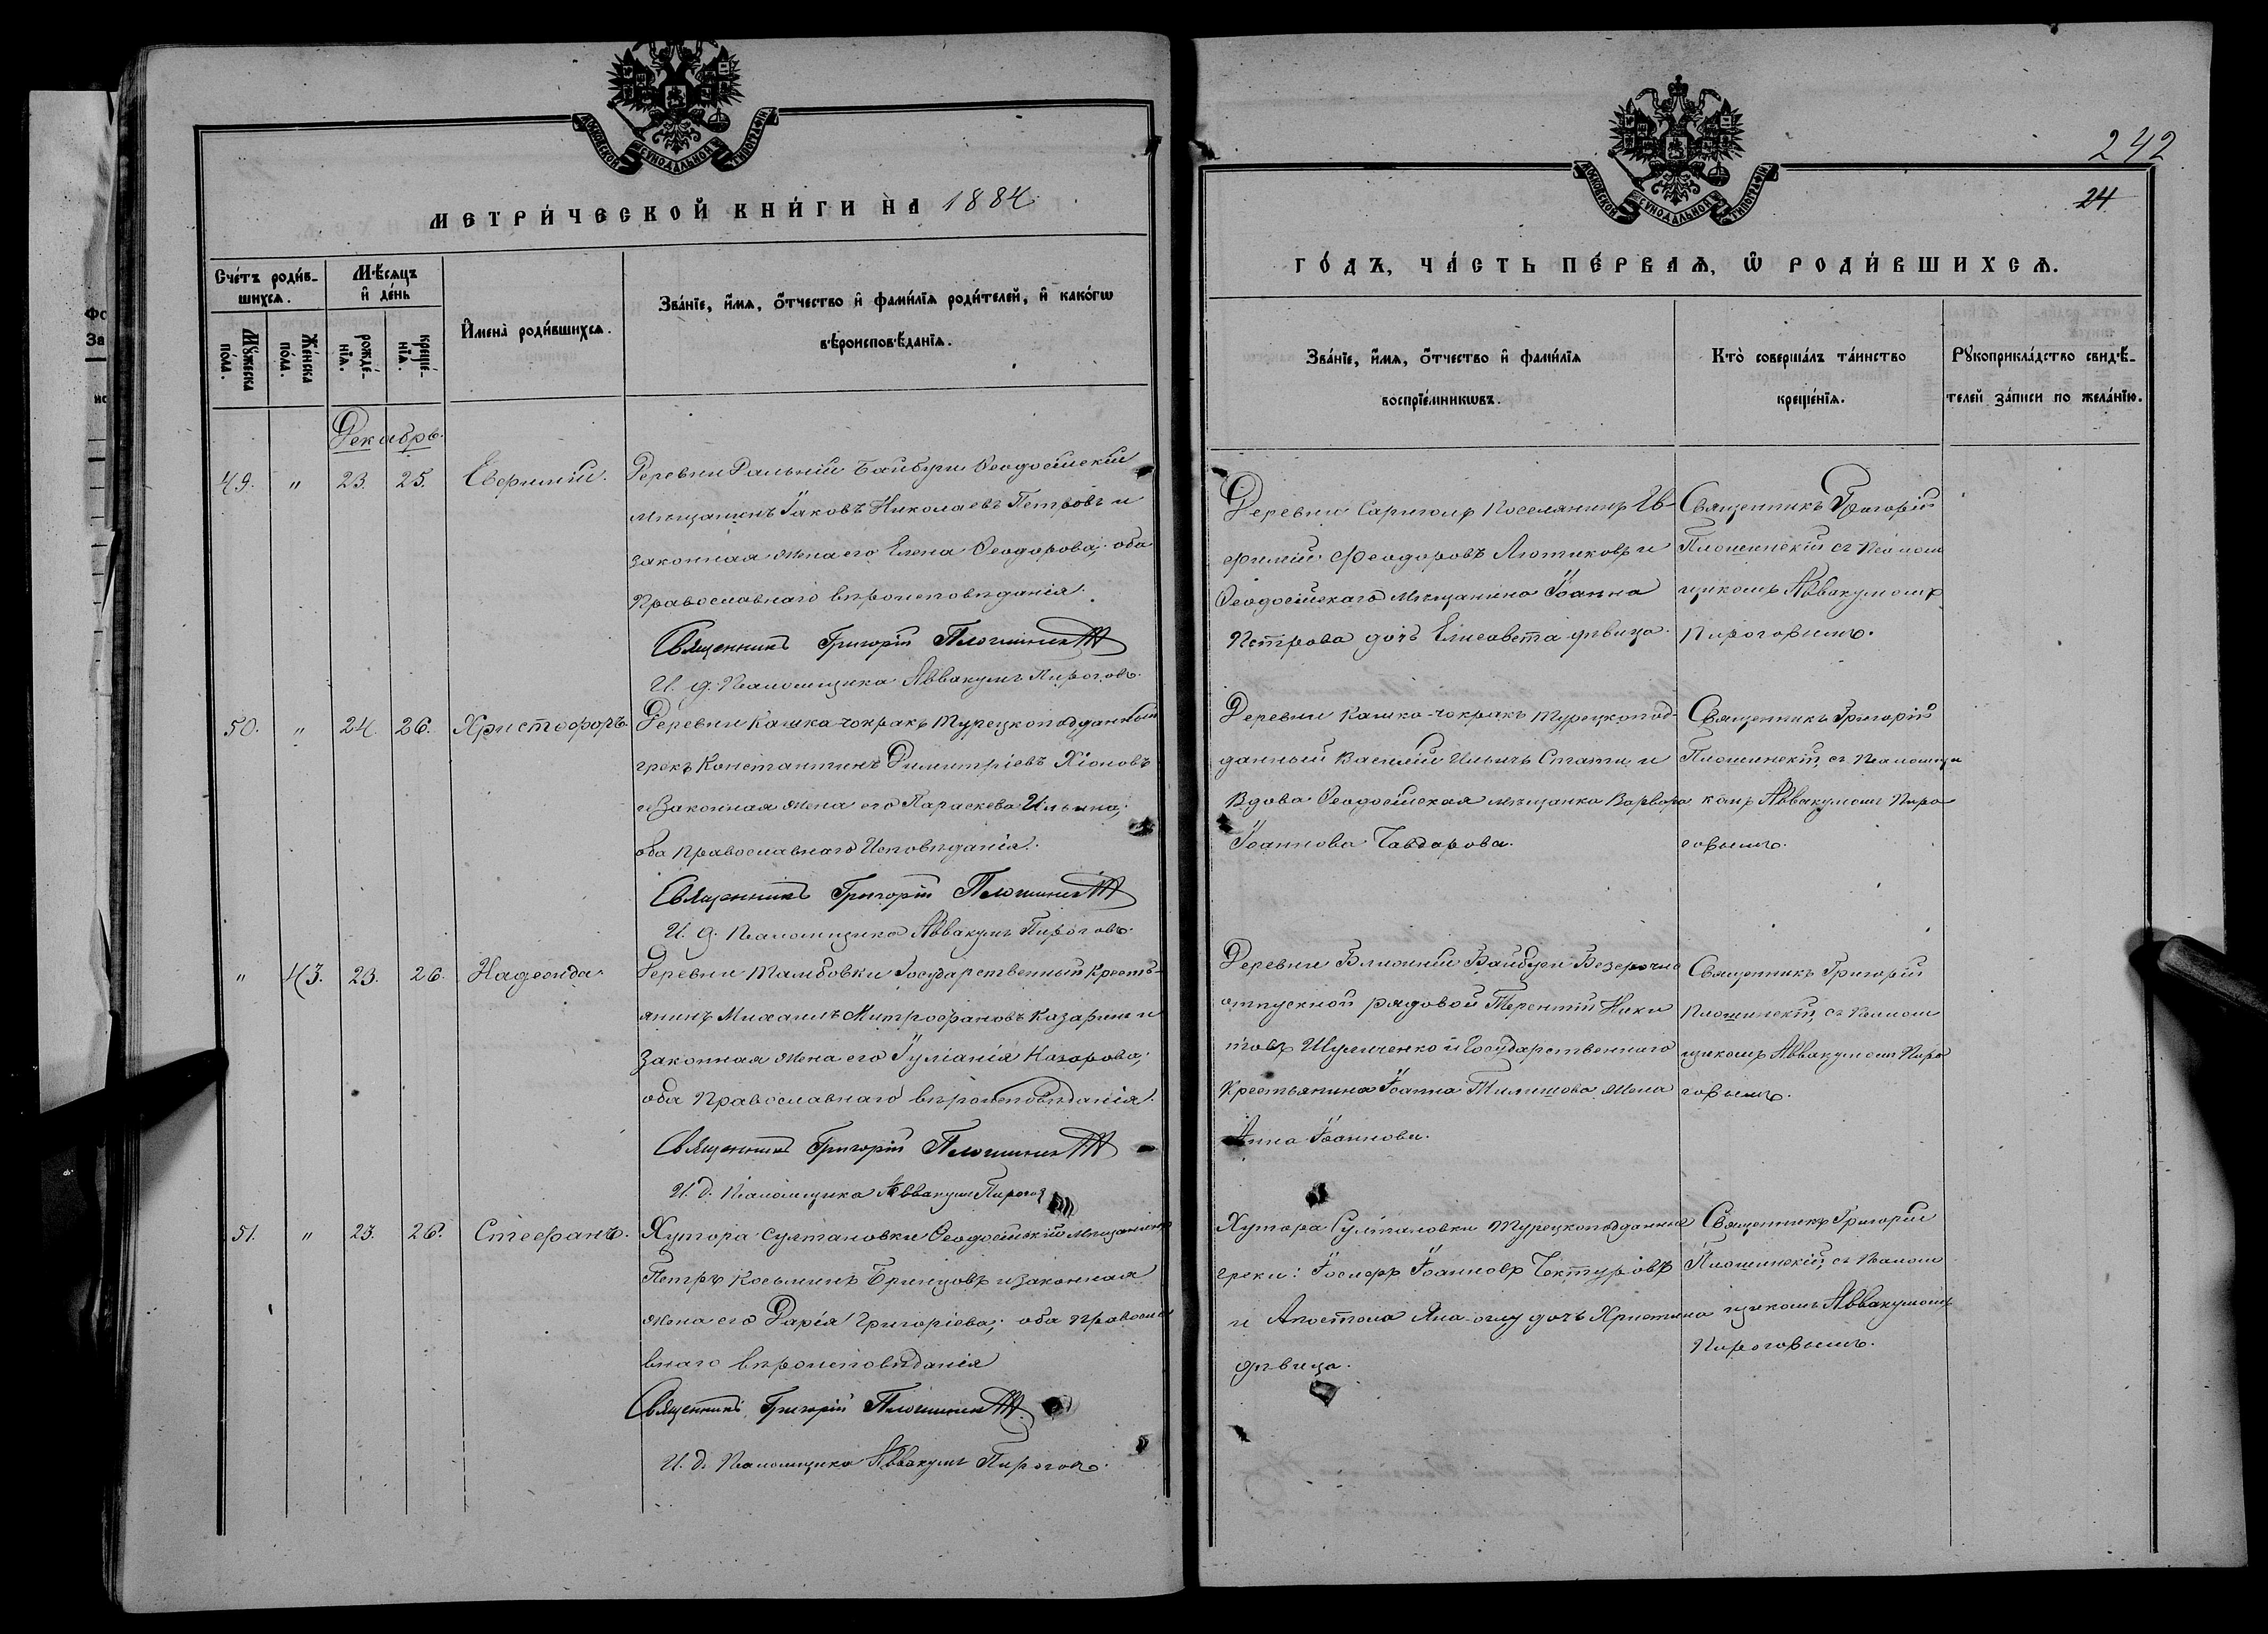 МОСКОВСКОЙ СУНОДАЛЬНОЙ ТИПОГРАФІИ
МЕТРИ́ЧЕСКОЙ КНИ́ГИ НА 1884
Сче́тъ роди́в-
шихсѧ.
Мѣ́сѧцъ
и҆ де́нь
Мꙋ́жеска
по́ла.
Же́нска
по́ла.
рожде́-
нїѧ.
креще́-
нїѧ.
И҆мена̀ роди́вшихсѧ.
Зва́нїе, и҆́мѧ, ѻ҆́тчество и҆ фами́лїѧ роди́телей, и҆ како́гѡ
вѣроисповѣ́данїѧ.
Декабрь.
49. " 23. 25. Евфимій.
Деревни Дальніи Байбуги Ѳеодосійскій
мѣщанинъ Іаковъ Николаевъ Петровъ и
законная жена его Елена Ѳеодорова; оба
Православнаго вѣроисповѣданія.
Священникъ Григорій
И. д. Псаломщика Аввакумъ Пироговъ.
50. " 24. 26. Христофоръ.
Деревни Кашка-чокракъ Турецкоподданный
грекъ Константинъ Димитріевъ Хіоновъ
и законная жена его Параскева Ильина;
оба Православнаго Исповѣданія.
Священникъ Григорій
И. д. Псаломщика Аввакумъ Пироговъ.
" 43. 23. 26. Надежда.
Деревни Тамбовки Государственный Кресть-
янинъ Михаилъ Митрофановъ Казаринъ и
законная жена его Іуліанія Назарова;
оба Православнаго вѣроисповѣданія.
Священникъ Григорій
И. д. Псаломщика Аввакумъ Пирогов
51. " 23. 26. Стефанъ.
Хутора Султановки Ѳеодосійскій Мѣщанинъ
Петръ Косьминъ и законная
жена его Дарія Григоріева; оба правосла
внаго вѣроисповѣданія
Священникъ Григорій
И. д. Псаломщика Аввакумъ Пироговъ.
242
24
МОСКОВСКОЙ СУНОДАЛЬНОЙ ТИПОГРАФІИ
ГО́ДЪ, ЧА́СТЬ ПЕ́РВАѦ, Ѡ҆ РОДИ́ВШИХСѦ.
Зва́нїе, и҆́мѧ, ѻ҆́тчество и҆ фами́лїѧ
воспрїе́мникѡвъ.
Кто̀ соверша́лъ та́инство
креще́нїѧ.
Рꙋкоприкла́дство свидѣ́-
телей за́писи по жела́нїю.
Деревни Сариголъ поселянинъ Ев-
фимій Ѳеодоровъ Лютиковъ и
Ѳеодосійскаго мѣщанина Іоанна
Петрова дочь Елисавета дѣвица.
Священникъ Григорій
Плошинскій съ Псалом
щикомъ Аввакумомъ
Пироговымъ.
Деревни Кашка-чокракъ Турецкопод-
данный Василій Ильичъ Стати и
Вдова Ѳеодосійская мѣщанка Варвара
Іоаннова Чавдарова.
Священникъ Григорій
Плошинскій, съ Псаломщи
комъ Аввакумомъ Пиро
говымъ.
Деревни Ближніи Байбуги Безсрочно
отпускной рядовой Терентій Ники
товъ и Государственнаго
Крестьянина Іоанна Тимишова жена
Анна Іоаннова.
Священникъ Григорій
Плошинскій, съ Псалом
щикомъ Аввакумомъ Пиро
говымъ.
Хутора Султановки Турецкоподданные
греки: Іосифъ Іоанновъ Чектуровъ
и Апостола Яна-оглу дочь Христина
дѣвица.
Священникъ Григорій
Плошинскій, съ Псалом
щикомъ Аввакумомъ
Пироговымъ.